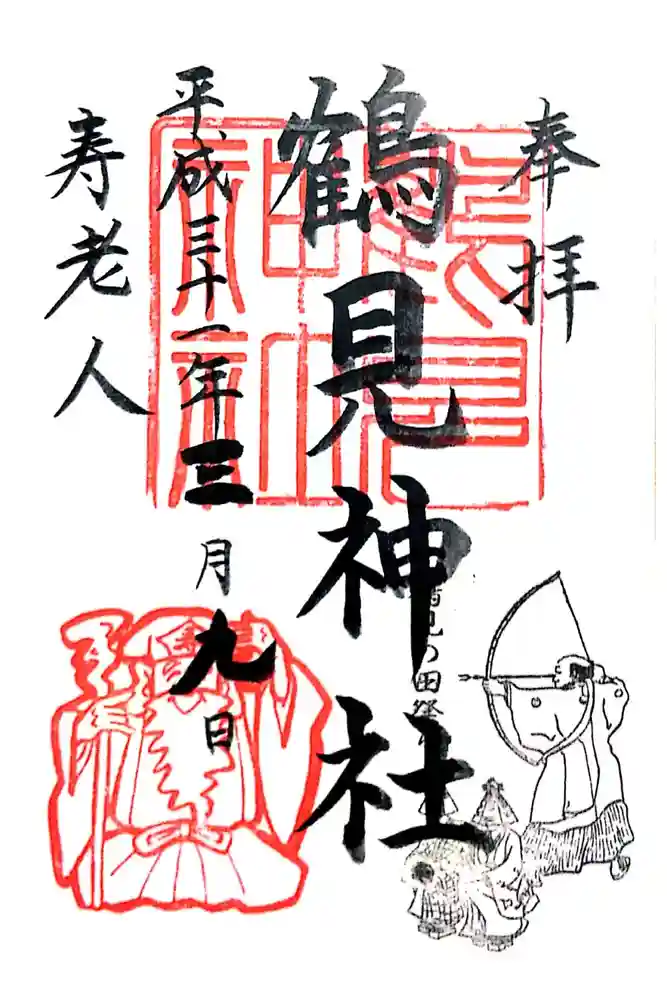 奉拝
鶴見神社
鶴見の田祭
平成三十一年三月九日
寿老人